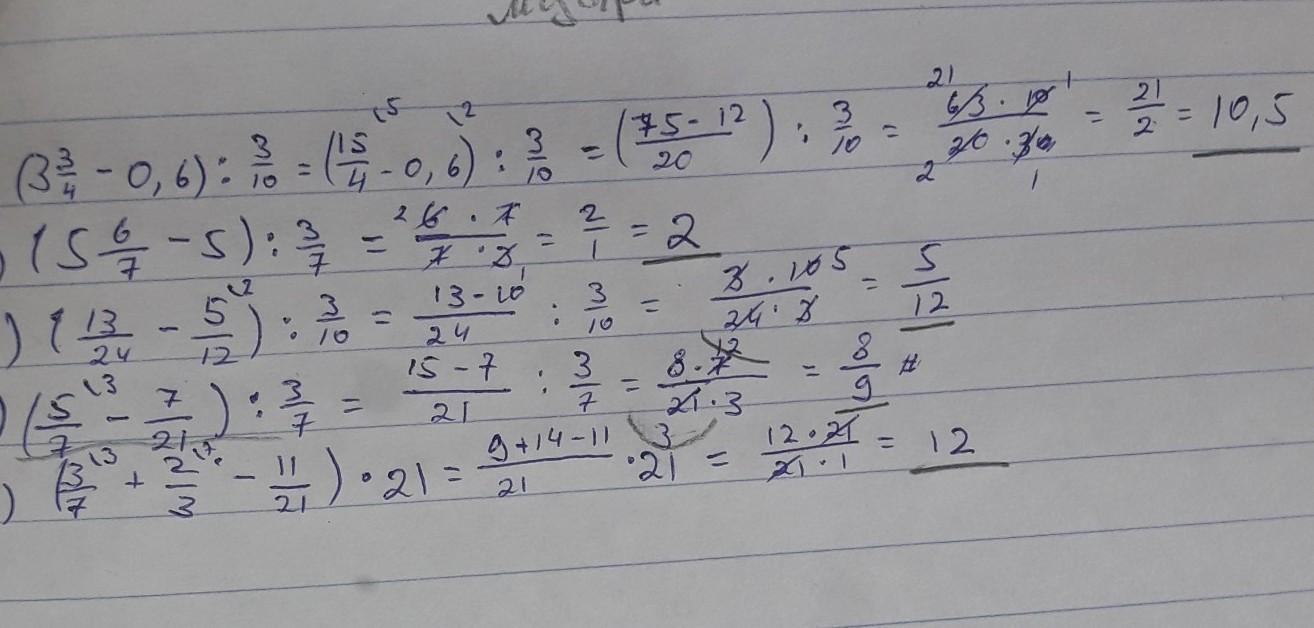 (3 3/4 - 0,6) : 3/10 = (15/4 - 0,6) : 3/10 = (75-12/20) : 3/10 = 63·10/20·3 = 21/2 = 10,5
) (5 6/7 - 5) : 3/7 = 6·7/7·3 = 2/1 = 2
) (13/24 - 5/12) : 3/10 = 13-10/24 : 3/10 = 3·10/24·3 = 5/12
) (5/7 - 7/21) : 3/7 = 15-7/21 : 3/7 = 8·7/21·3 = 8/9 #
) (3/7 + 2/3 - 11/21) · 21 = 9+14-11/21 · 21 = 12·21/21·1 = 12